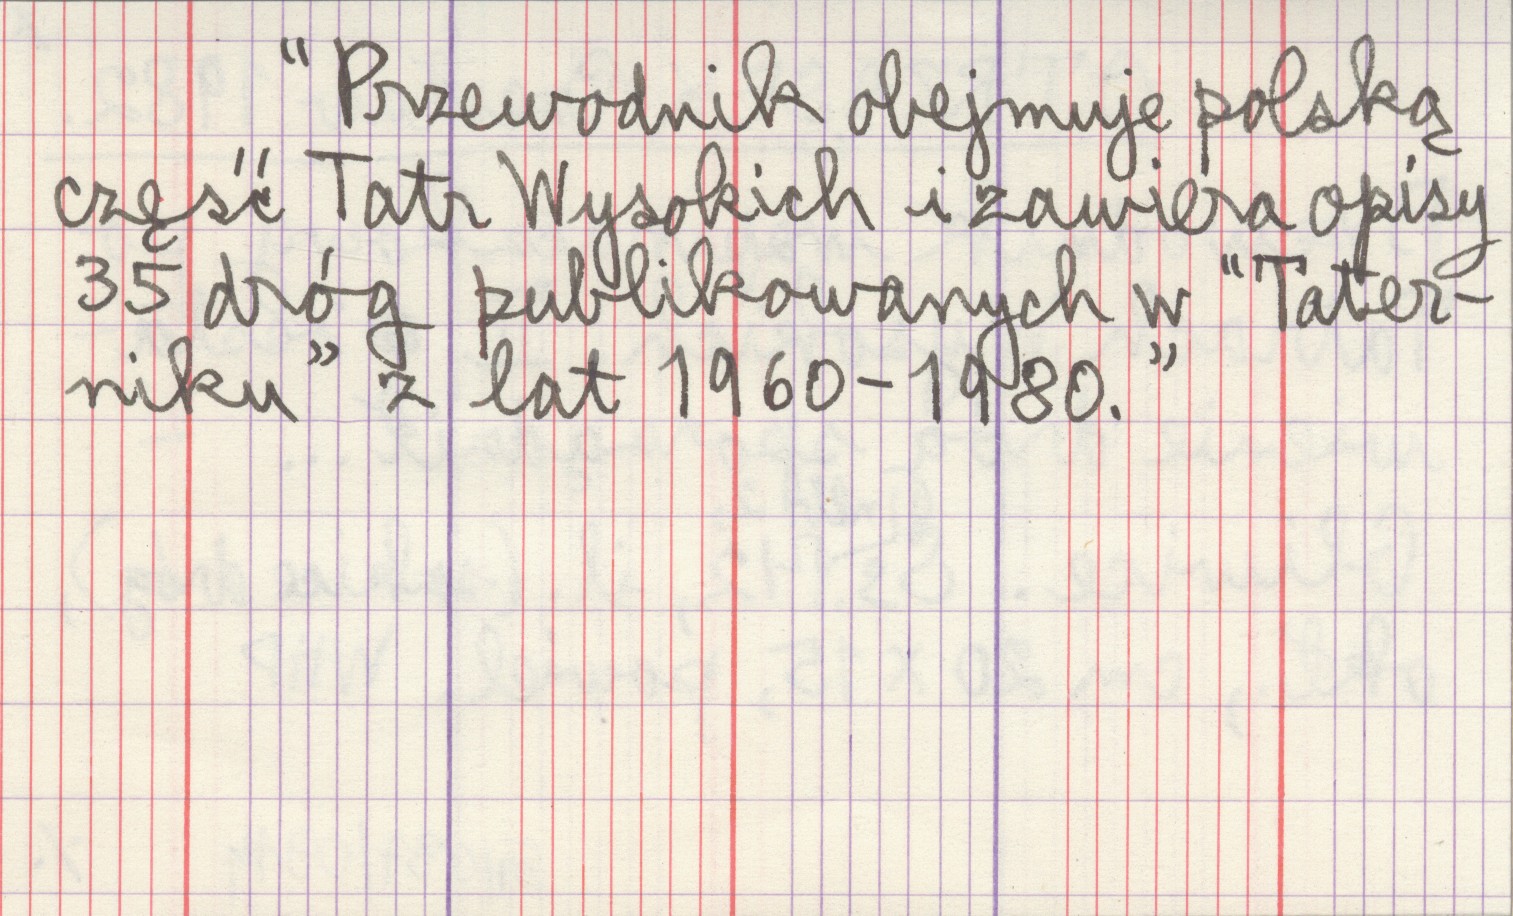 "Przewodnik obejmuje polską
część Tatr Wysokich i zawiera opisy
35 dróg publikowanych w "Tater-
niku" z lat 1960-1980."